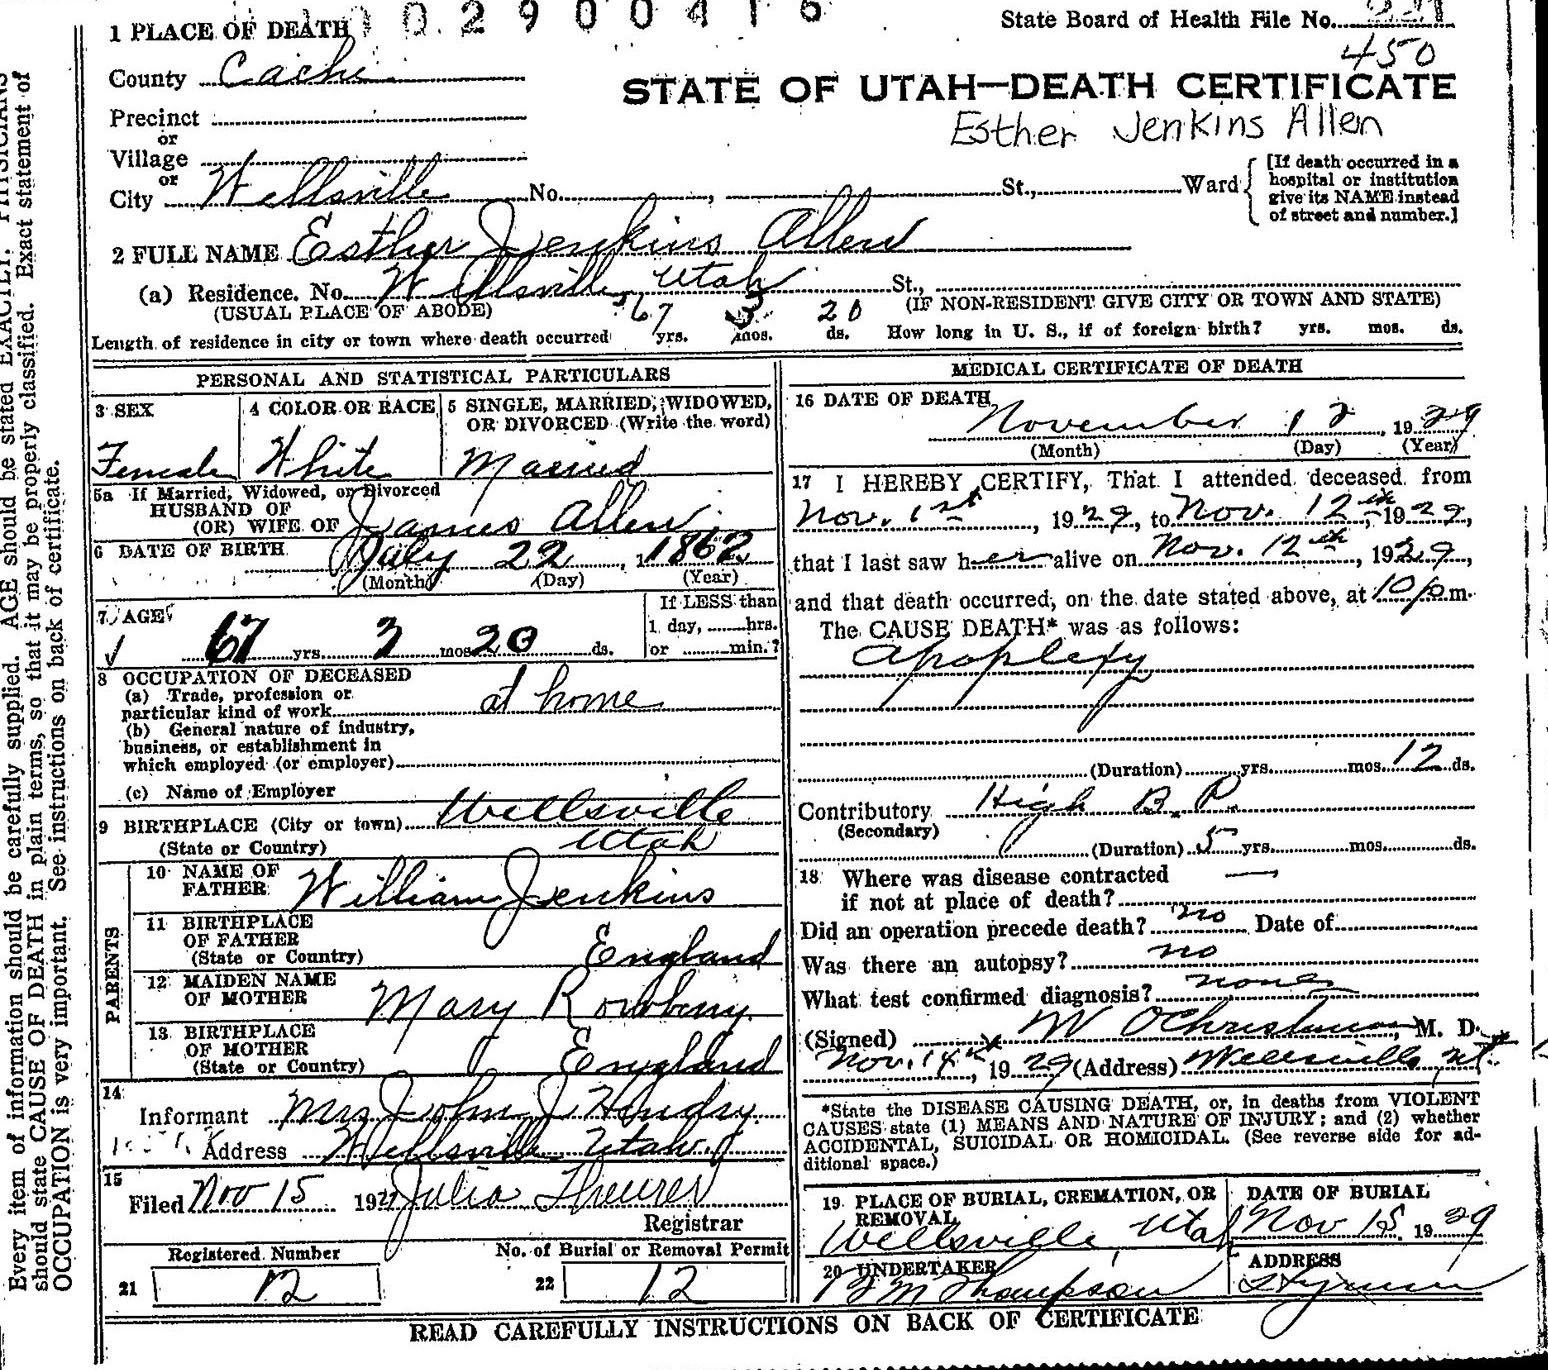 1 PLACE OF DEATH 1002900416
State Board of Health File No.
450
County Cache
STATE OF UTAH—DEATH CERTIFICATE
Esther Jenkins Allen
Precinct
or
Village
or
City Wellsville No. , St., Ward
[If death occurred in a
hospital or institution
give its NAME instead
of street and number.]
2 FULL NAME Esther Jenkins Allen
(a) Residence. No. Wellsville Utah St.,
(USUAL PLACE OF ABODE) (IF NON-RESIDENT GIVE CITY OR TOWN AND STATE)
Length of residence in city or town where death occurred 67 yrs. 3 mos. 20 ds. How long in U. S., if of foreign birth? yrs. mos. ds.
PERSONAL AND STATISTICAL PARTICULARS
3 SEX
Female
4 COLOR OR RACE
White
5 SINGLE, MARRIED, WIDOWED,
OR DIVORCED (Write the word)
Married
5a If Married, Widowed, or Divorced
HUSBAND OF
(OR) WIFE OF James Allen
6 DATE OF BIRTH July 22, 1862
(Month) (Day) (Year)
7 AGE
67 yrs 3 mos 20 ds.
If LESS than
1 day, hrs.
or min.?
8 OCCUPATION OF DECEASED
(a) Trade, profession or
particular kind of work at home
(b) General nature of industry,
business, or establishment in
which employed (or employer)
(c) Name of Employer
9 BIRTHPLACE (City or town) Wellsville
(State or Country) Utah
PARENTS
10 NAME OF
FATHER William Jenkins
11 BIRTHPLACE
OF FATHER
(State or Country) England
12 MAIDEN NAME
OF MOTHER Mary Rowberry
13 BIRTHPLACE
OF MOTHER
(State or Country) England
14
Informant Mrs John J Hendry
Address Wellsville Utah
15
Filed Nov 15 1929 Julia Theurer
Registrar
Registered Number
21 12
No. of Burial or Removal Permit
22 12
MEDICAL CERTIFICATE OF DEATH
16 DATE OF DEATH
November 12, 1929
(Month) (Day) (Year)
17 I HEREBY CERTIFY, That I attended deceased from
Nov. 1st, 1929, to Nov. 12th, 1929,
that I last saw her alive on Nov. 12th, 1929,
and that death occurred, on the date stated above, at 10 p m.
The CAUSE DEATH* was as follows:
Apoplexy
(Duration) yrs. mos. 12 ds.
Contributory High B. P.
(Secondary)
(Duration) 5 yrs. mos. ds.
18 Where was disease contracted
if not at place of death? —
Did an operation precede death? no Date of
Was there an autopsy? no
What test confirmed diagnosis? none
(Signed) W O Christensen, M. D.
Nov. 14th, 1929 (Address) Wellsville, Ut.
*State the DISEASE CAUSING DEATH, or, in deaths from VIOLENT
CAUSES state (1) MEANS AND NATURE OF INJURY; and (2) whether
ACCIDENTAL, SUICIDAL OR HOMICIDAL. (See reverse side for ad-
ditional space.)
19 PLACE OF BURIAL, CREMATION, OR
REMOVAL
Wellsville, Utah
DATE OF BURIAL
Nov 15 1929
20 UNDERTAKER
Thompson
ADDRESS
READ CAREFULLY INSTRUCTIONS ON BACK OF CERTIFICATE
Every item of information should be carefully supplied. AGE should be stated EXACTLY. PHYSICIANS
should state CAUSE OF DEATH in plain terms, so that it may be properly classified. Exact statement of
OCCUPATION is very important. See instructions on back of certificate.